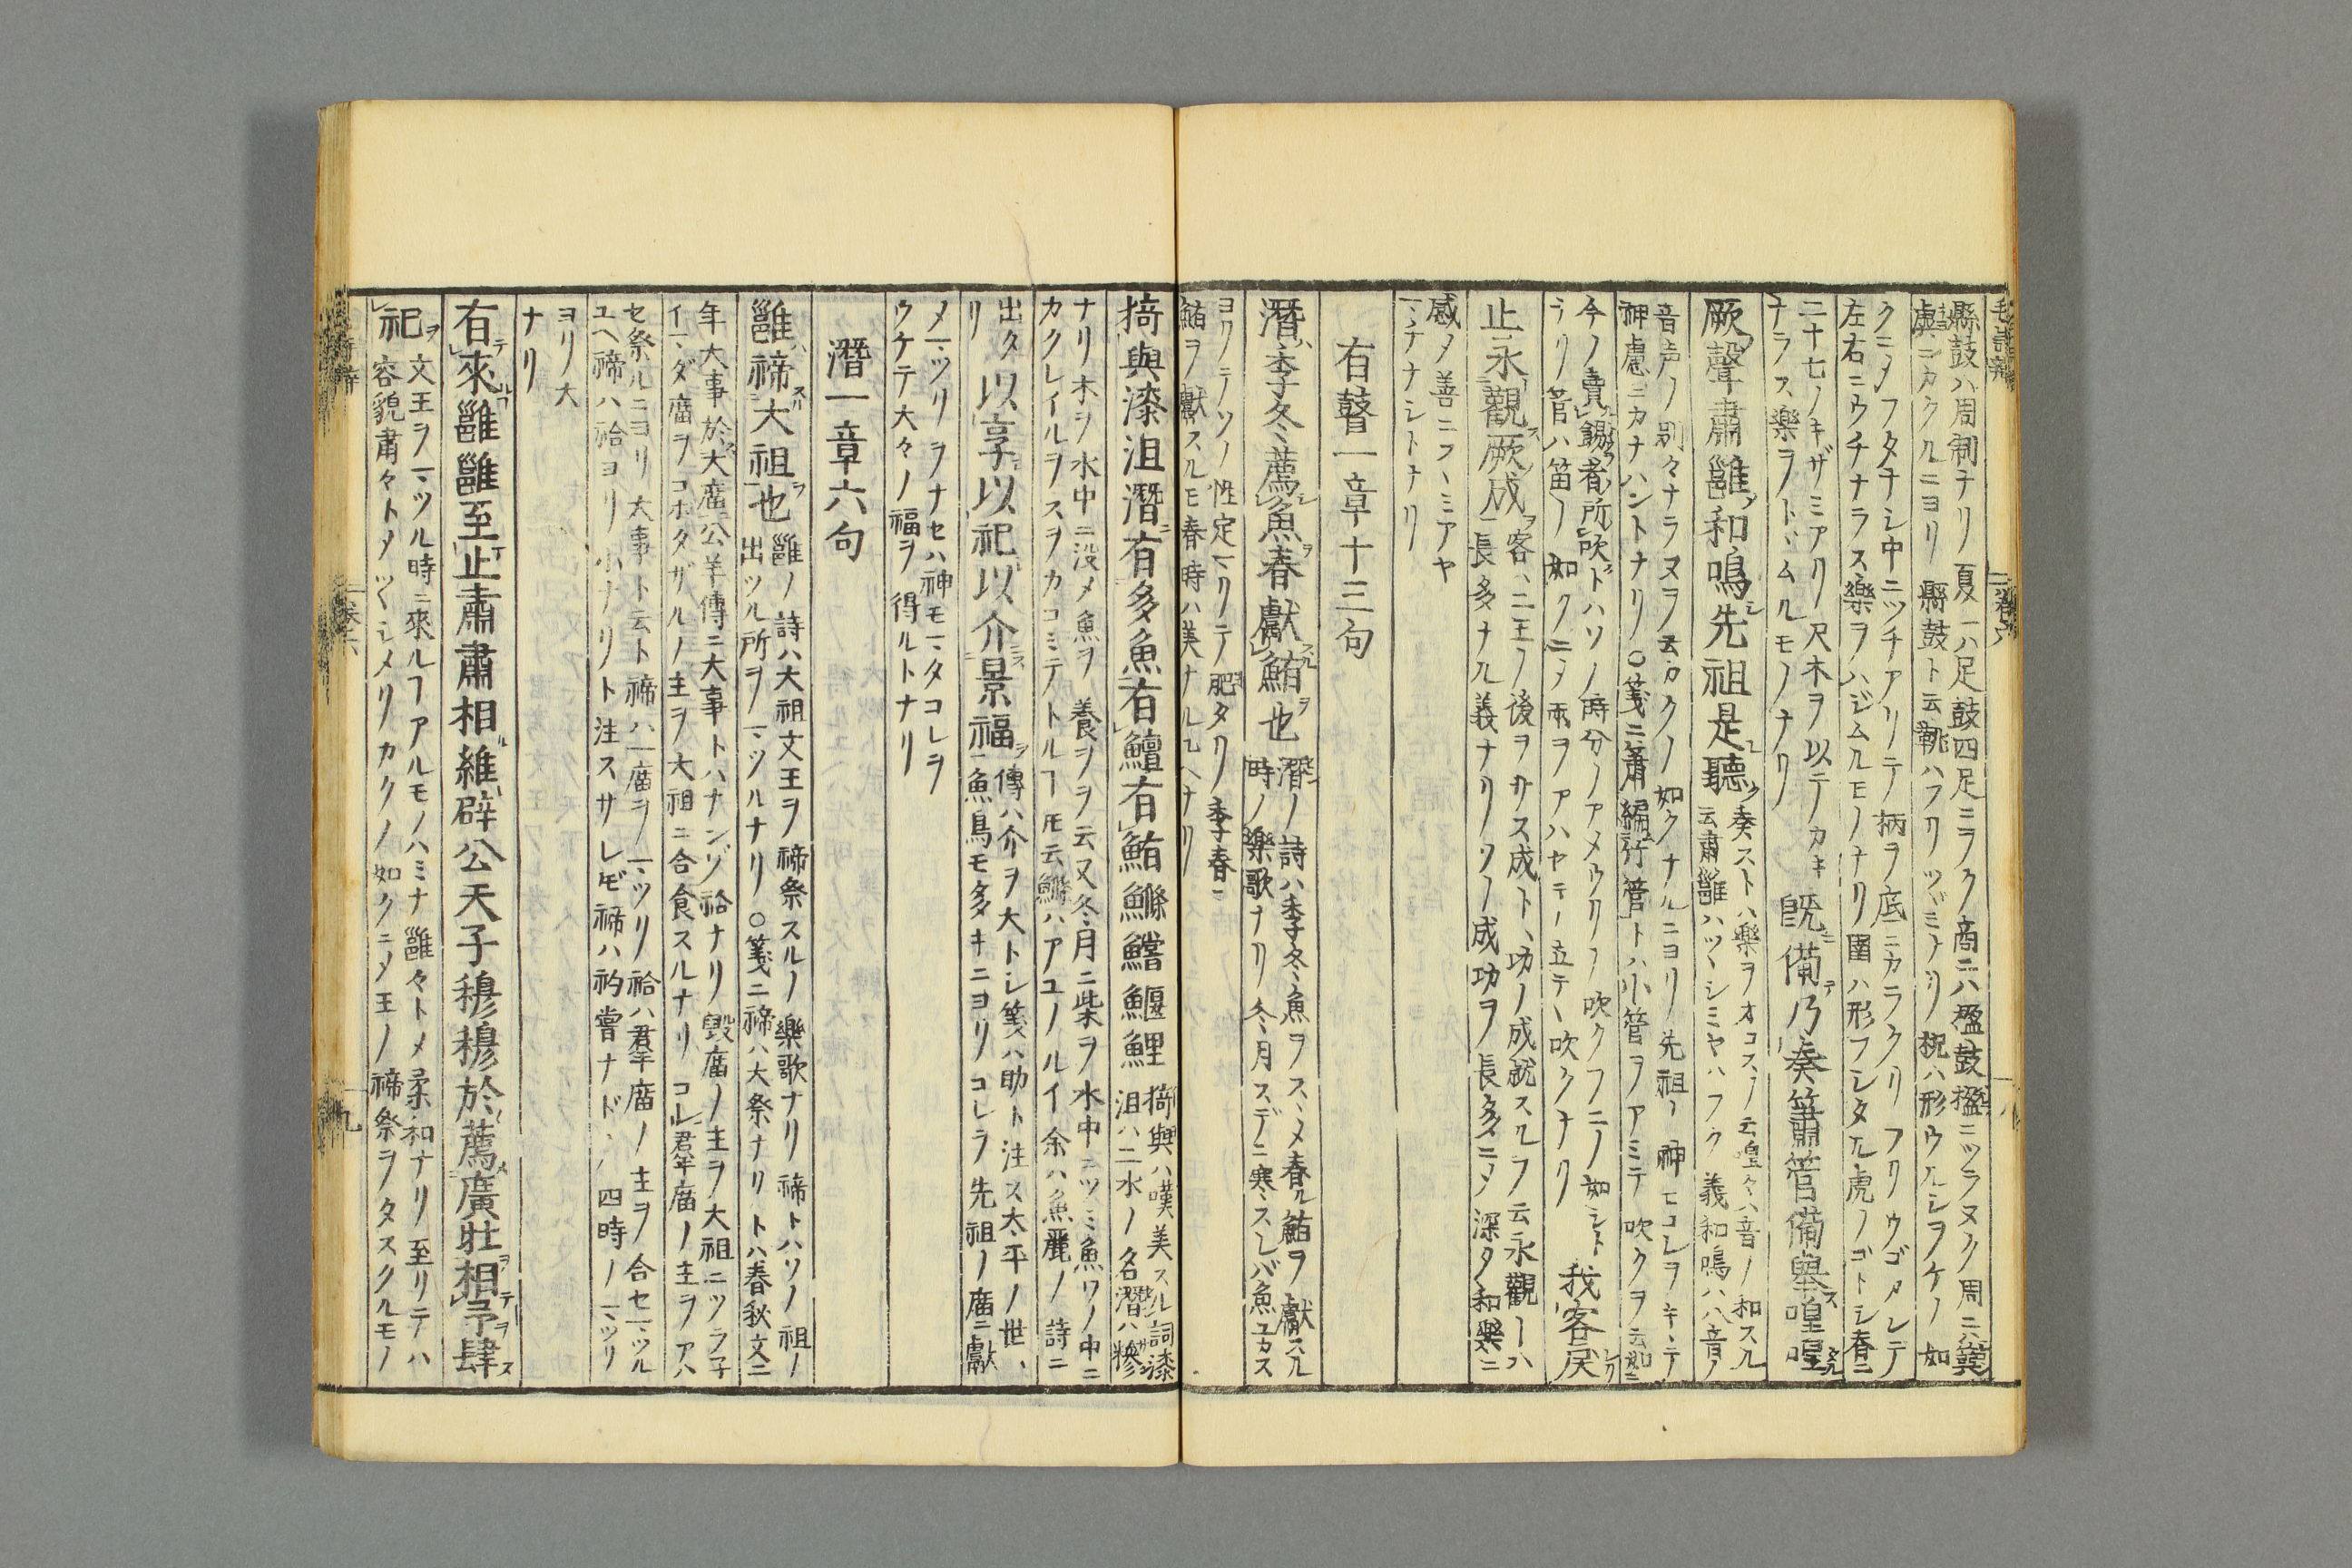 縣鼓ハ周制ナリ夏ハ足鼓四足ヲヲク商ニハ楹鼓楹ニツラヌク周ニハ簨
虡ニカクルニヨリ縣鼓ト云鞉ハフリツヾミナリ柷ハ形ウルシヲケノ如
クニメフタナシ中ニツチアリテ柄ヲ底ニカラクリフリウゴメシテ
左右ニウチナラス樂ヲハジムルモノナリ圉ハ形フシタル虎ノゴトシ春ニ
二十七ノキザミアリ尺木ヲ以テカキ
ナラス樂ヲトヾムルモノナリ
既備乃奏簫管備舉喤喤
厥聲肅雝和鳴先祖是聽
奏ストハ樂ヲオコスヿヲ云喤々ハ音ノ和スル
云肅雝ハツヽシミヤハラク義和鳴ハ八音ノ
音声ノ別々ナラヌヲ云カクノ如クナルニヨリ先祖ノ神モコレヲキヽテ
神慮ニカナハントナリ○箋ニ簫編竹管トハ小管ヲアミテ吹クヲ云如ニ
今ノ賣錫者所吹トハソノ時分ノアメウリノ吹クフエノ如シト
ラリ管ハ笛ノ如クニメ兩ヲアハセテ立テ吹クナリ
我客戾
止永觀厥成
客ハ二王ノ後ヲサス成トハ功ノ成就スルヲ云永觀トハ
長多ナル義ナリソノ成功ヲ長多ニメ深ク和樂ニ
感メ善ニフヽミアヤ
マチナシトナリ
有瞽一章十三句
潛季冬薦魚春獻鮪也
潛ノ詩ハ季冬魚ヲスヽメ春ル鮪ヲ獻スル
時ノ樂歌ナリ冬月スデニ寒スレバ魚ユカス
ヨリテソノ性定マリテ肥タリ季春ニ
鮪ヲ獻スルモ春時ハ美ナルユヘナリ
猗與漆沮潛有多魚有鱣有鮪鰷鱨鰋鯉
猗與ハ嘆美スル詞漆
沮ハ二水ノ名潛ハ糝
ナリ木ヲ水中ニ没メ魚ヲ養ヲヲ云又冬月ニ柴ヲ水中ニツミ魚ソノ中ニ
カクレイルヲスヲカコミテトルヿモ云鰷ハアユノルイ余ハ魚麗ノ詩ニ
出タ
リ
以享以祀以介景福
傳ハ介ヲ大トシ箋ハ助ト注ス太平ノ世ハ
魚鳥モ多キニヨリコレラ先祖ノ廟ニ獻
メマツリヲナセハ神モマタコレヲ
ウケテ大々ノ福ヲ得ルトナリ
潛一章六句
雝禘大祖也
雝ノ詩ハ大祖文王ヲ禘祭スルノ樂歌ナリ禘トハソノ祖ノ
出ツル所ヲマツルナリ○箋ニ禘ハ大祭ナリトハ春秋文ニ
年大事於大廟公羊傳ニ大事トハナンゾ祫ナリ毀廟ノ主ヲ大祖ニツラ子
イマダ廟ヲコホタザルノ主ヲ大祖ニ合食スルナリコレ羣廟ノ主ヲアハ
セ祭ルニヨリ大事ト云ト禘ハ一廟ヲノマツリ祫ハ羣廟ノ主ヲノ合セマツル
ユヘ禘ハ祫ヨリ小ナリト注スサレトモ禘ハ礿嘗ナドノ四時ノマツリ
ヨリ大
ナリ
有來雝雝至止肅肅相維辟公天子穆穆於薦廣牡相予肆
祀
文王ヲマツル時ニ來ルヿアルモノハミナ雝々トメ柔和ナリ至リテハ
容貌肅々トメツヽシメリカクノ如クニメ王ノ禘祭ヲタスクルモノ